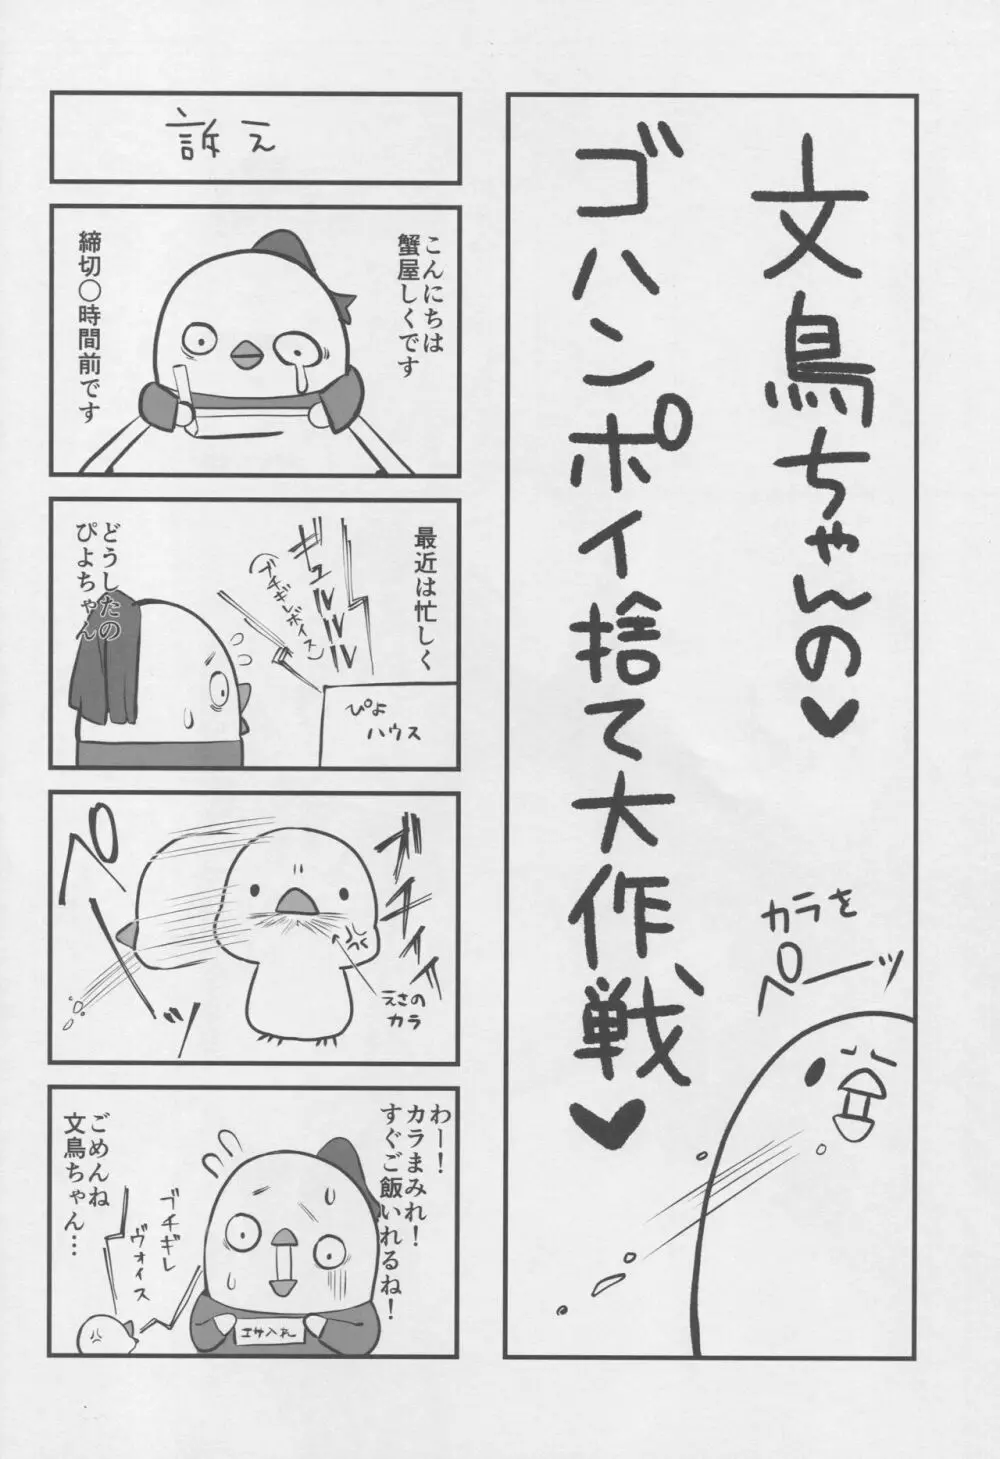 文鳥ちゃんの♥
ゴハンポイ捨て大作戦♥
カラを
ペーッ
訴え
こんにちは
蟹屋しくです
締切〇時間前です
最近は忙しく
ギュルルルル
(ブチギレボイス)
ぴよ
ハウス
どうしたの
ぴよちゃん
ガチギレ
えさの
カラ
ペッ
わー！
カラまみれ！
すぐご飯いれるね！
エサ入れ
ごめんね
文鳥ちゃん…
ブチギレ
ヴォイス